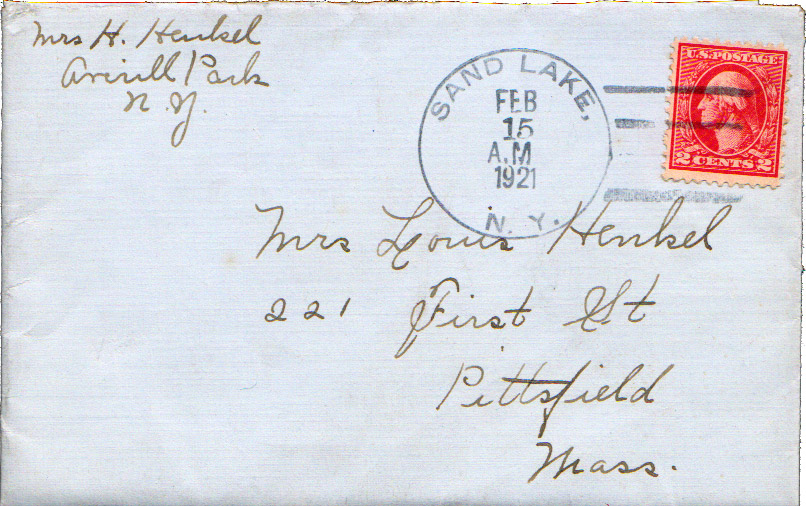 Mrs H. Henkel
Averill Park
N.Y.
SAND LAKE,
FEB
15
A.M
1921
N. Y.
U.S. POSTAGE
2 CENTS 2
Mrs Louis Henkel
221 First St
Pittsfield
Mass.